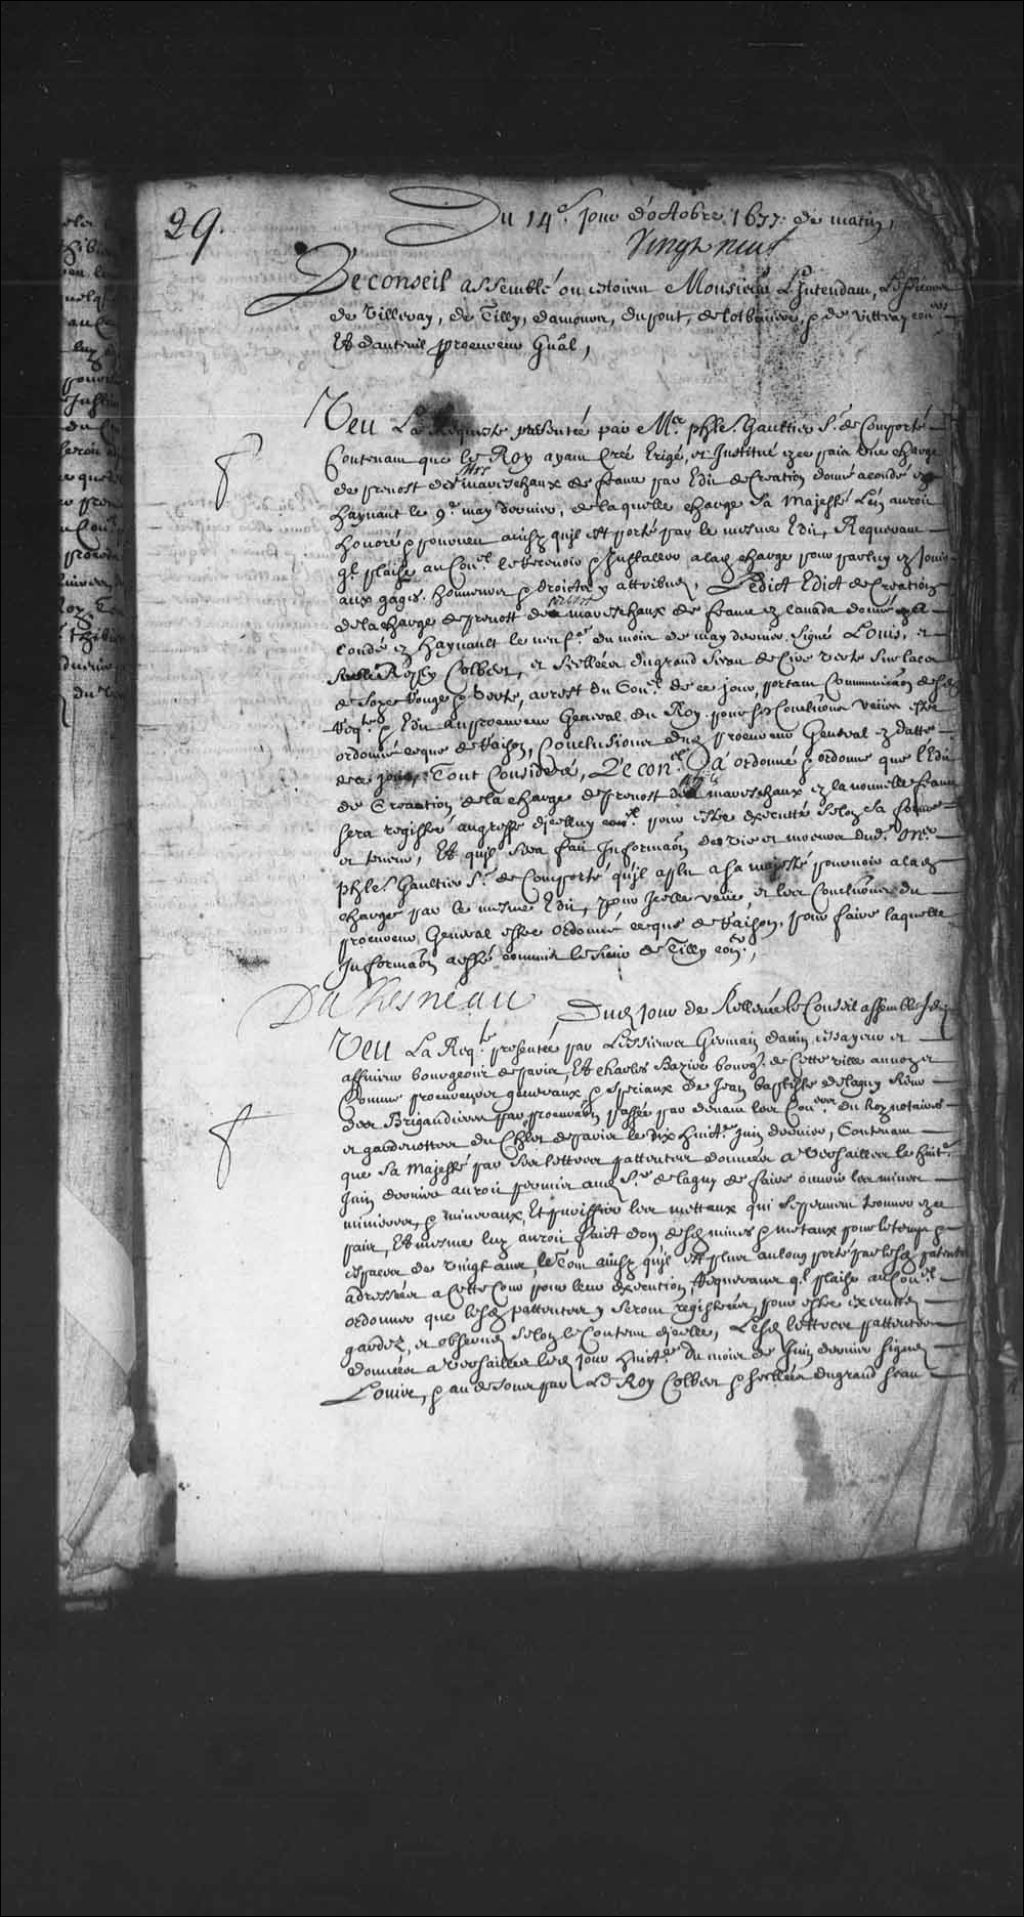 29.
Du 14e. jour d'octobre 1677. de matin,
Vingt neuf
Le conseil assemblé ou estoient Monsieur L'Intendant, Les sieurs
de Villeray, de Tilly, damours, dupont, de lotbiniere, & de vitray coners
Et dauteuil procureur gñal,
Veu La Requeste presentée par Mre. phle. Gaultier Sr. de Comporté
Contenant que le Roy ayant Creé Erigé, et Institué en ce païs Une charge
de prevost des mareschaux de france par Edit de Creation donné a condé en
haynaut le 9e. may dernier, de laquelle charge Sa Majesté L'en auroit
honoré & pourveu ainsy qu'il est porté par le mesme Edit, Requerant
ql. plaise au Conel. le recevoir & Installer a lad. charge pour par luy en Jouir
aux gages. honneurs & droicts y attribuez, Ledict Edict de Creation
de la charge de prevost des mareschaux de france en Canada donné a
Condé en haynault le neufe. du mois de may dernier. Signé Louis, et
Par le Roy Colbert, et scellées du grand sceau de cire verte sur lacs
de soye rouge & verte, arrest du Conel. de ce jour, portant Communicaõn desd.
Reqte. & Edit au procureur General du Roy pour ses Conclusions veües estre
ordonné ce que de raison, Conclusions dud. procureur General en datte
de ce jour, Tout Consideré, Le conel. a ordonné & ordonne que l'Edit
de Creaation de la charge de prevost des mareschaux en la nouvelle france
sera registré au greffe d'icelluy conel. pour estre executté selon sa forme
et teneur, Et qu'il sera fait Informaõn des vie et moeurs dud. Mre.
phle. Gaultier Sr. de Comporté qu'il a plu a sa majesté pourvoir a lad.
charge par le mesme Edit, pour Icelle veüe, et les Conclusions du
procureur General estre ordonné ce que de raison, pour faire laquelle
Informaõn a esté commis le sieur de Tilly coner.,
DuChesneau
Dud. jour de Rellevée le Conseil assemblé
Veu La Reqte. presentée par Les sieurs Germain essayeur et
affineur bourgeois de paris, Et charles Bazire bourgs. de Cette ville au nom et
Comme procureurs generaux & speciaux de Jean baptiste de lagny sieur
des Brigandieres par procuraõn passée par devant les Coners. du Roy notaires
et gardenottes du Chlet. de paris le dix huicte. Juin dernier, Contenant
que sa Majesté par ses lettres pattentes données a Versailles le huite.
Juin dernier auroit permis aud. Sr. de lagny de faire ouvrir les mines
minieres, & mineraux, Et purifier les mettaux qui se peuvent trouver en ce
païs, Et mesme luy auroit faict don desd. mines & metaux pour le temps &
espaces de vingt ans, le tout ainsy qu'il est plus au long porté par lesd. patentes
adressées a Cette Cour pour leur execution, Requerans ql. plaise au Conel.
ordonner que lesd. pattentes y seront registrées, pour estre executtées
gardez, et observées selon le Contenu d'icelles, Lesd. lettres pattentes
données a Versailles led. jour huite. du mois de Juin dernier signées
Louis, & au dessous par Le Roy Colbert & scellées du grand sceau